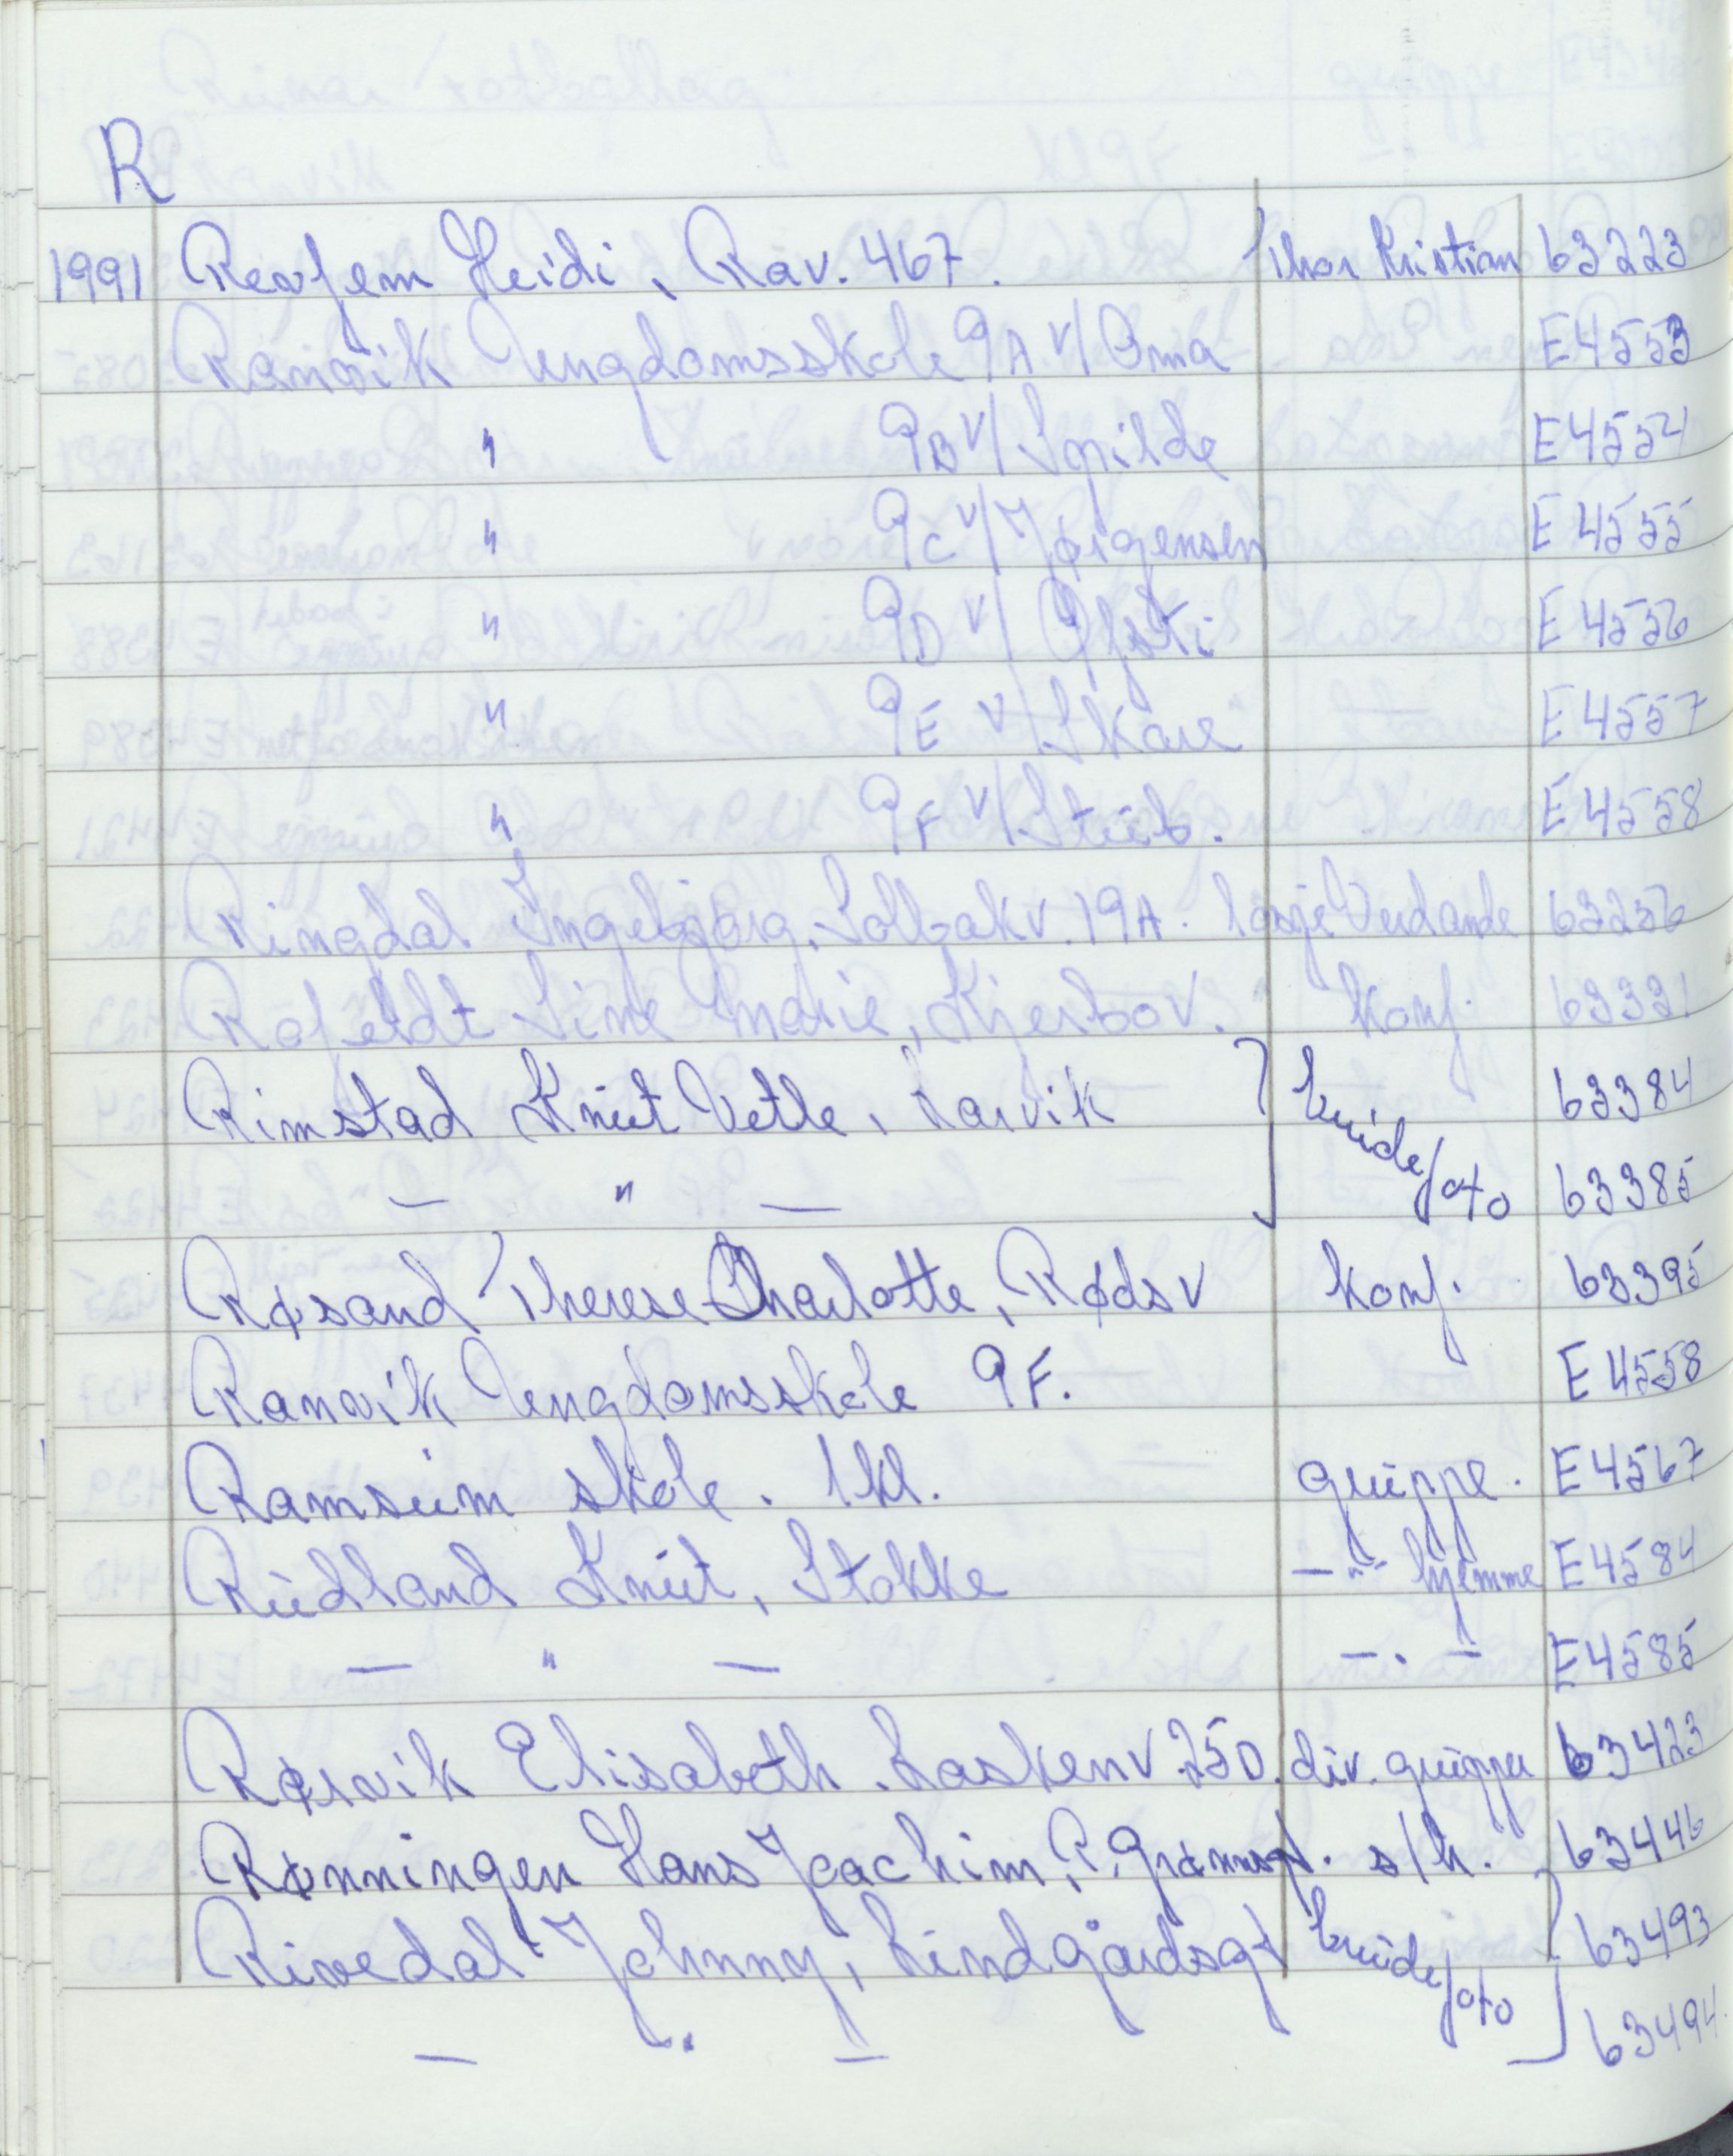 R
1991 Revfem Heidi, Rav. 467. Thor Kristian 63223
Ranvik Ungdomsskole 9A v/ Oma E4553
" 9B v/ Spilde E4554
" 9C v/ Jørgensen E4555
" 9D v/ Ofsti E4556
" 9E v/ Skare E4557
" 9F v/ Stub. E4558
Ringdal Ingebjørg, Solbakv. 19A. losje Verdande 63256
Rofeldt Line Marie, Kjerbov. Konf. 63331
Rimstad Knut Vetle, Larvik } brudefoto 63384
— " — 63385
Røsand Therese Charlotte, Rødsv konf. 63395
Ranvik Ungdomsskole 9F. E4558
Ramsum skole. 1kl. gruppe. E4567
Rudland Knut, Stokke — " — hjemme E4584
— " — — . — E4585
Rørvik Elisabeth. Laskenv. 25D. div. grupper 63423
Rønningen Hans Joachim, P. Grønnsgt. s/h. 63446
Rivedal Johnny, Lindgårdsgt brudefoto } 63493
— " — 63494.